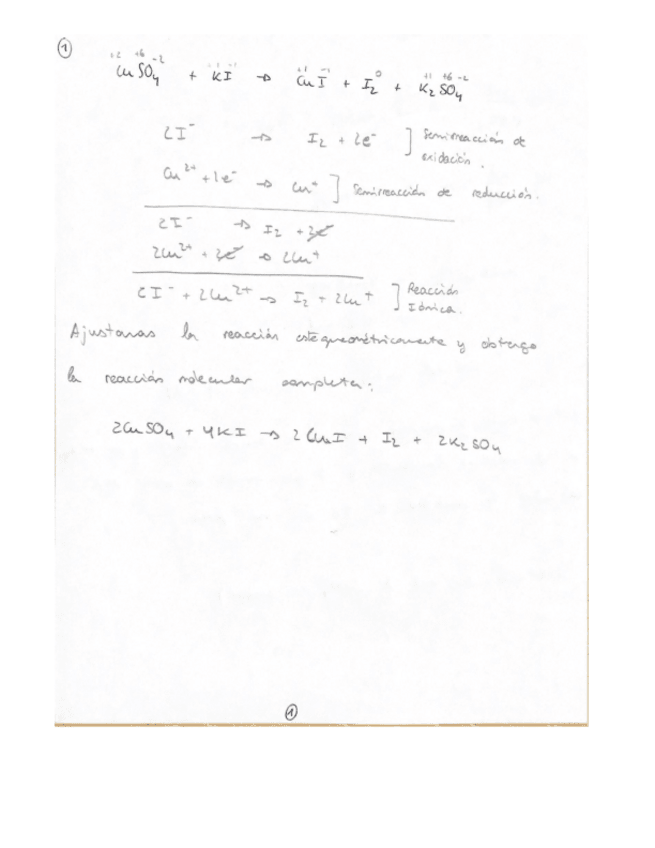 ①
+2 +6 -2 +1 -1 +1 -1 0 +1 +6 -2
CuSO₄ + KI → CuI + I₂ + K₂SO₄
2I⁻ → I₂ + 2e⁻ ] Semirreacción de
oxidación.
Cu²⁺ + 1e⁻ → Cu⁺ ] Semirreacción de reducción.
2I⁻ → I₂ + 2e⁻
2Cu²⁺ + 2e⁻ → 2Cu⁺
2I⁻ + 2Cu²⁺ → I₂ + 2Cu⁺ ] Reacción
Iónica.
Ajustamos la reacción estequeométricamente y obtengo
la reacción molecular completa:
2CuSO₄ + 4KI → 2CuI + I₂ + 2K₂SO₄
①